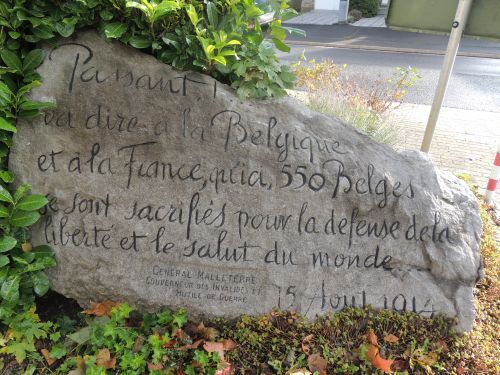 Passant!
va dire à la Belgique
et à la France, qu'ici, 550 Belges
se sont sacrifiés pour la defense de la
liberté et le salut du monde
GÉNÉRAL MALLETERRE
GOUVERNEUR DES INVALIDES ET
MUTILÉ DE GUERRE
15 Août 1914